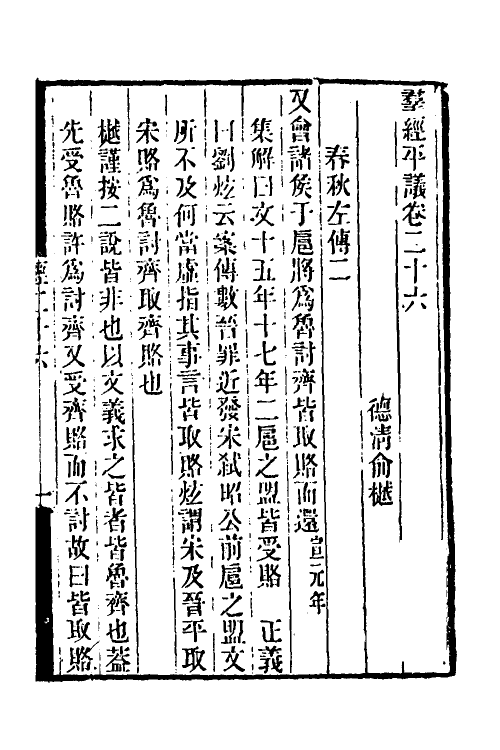 羣經平議卷二十六
德清俞樾
春秋左傳二
又會諸矦于扈將爲魯討齊皆取賂而還宣元年
集解曰文十五年十七年二扈之盟皆受賂　正義
曰劉炫云案傳數晉罪近發宋弑昭公前扈之盟文
所不及何當虛指其事言皆取賂炫謂宋及晉平取
宋賂爲魯討齊取齊賂也
樾謹按二說皆非也以文義求之皆者皆魯齊也葢
先受魯賂許爲討齊又受齊賂而不討故曰皆取賂
經二十六
一